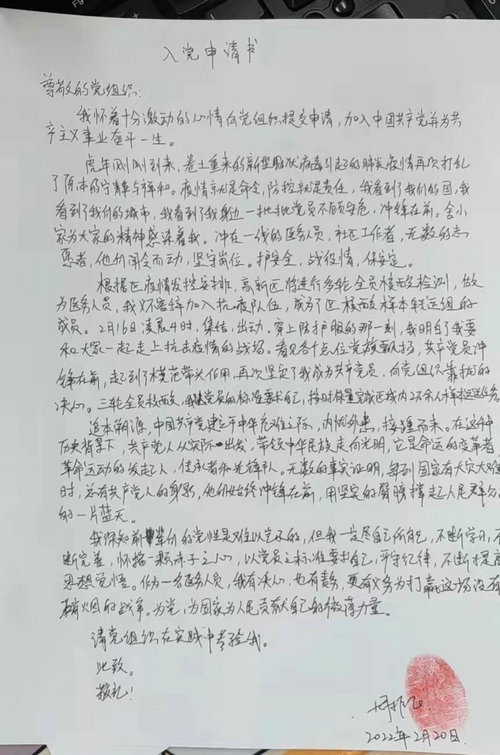 入党申请书
尊敬的党组织:
我怀着十分激动的心情向党组织提交申请,加入中国共产党并为共
产主义事业奋斗一生。
虎年刚刚到来、卷土重来的新型冠状病毒引起的肺炎疫情再次打乱
了原本的宁静与祥和。疫情就是命令,防控就是责任,我看到了我们的国,我
看到了我们的城市,我看到了我身边一批批党员不顾安危,冲锋在前。舍小
家为大家的精神感染着我。冲在一线的医务人员,社区工作者,无数的志
愿者,他们闻令而动,坚守岗位。护安全,战疫情,保安定。
根据区疫情发控安排,高新区将进行多轮全员核酸检测,做
为医务人员,我义不容辞加入抗疫队伍,成为了区核酸样本转运组的
成员。2月16日凌晨4时,集结,出动,穿上防护服的那一刻,我明白了我要
和大家一起走上抗击疫情的战场。看见各个点位党旗飘扬,共产党员冲
锋在前,起到了模范带头作用,再次坚定了我成为共产党员,向党组织靠拢的
决心。三轮全员核酸,我以党员的标准要求自己,按时保量完成区域内
追本溯源,中国共产党建立于中华危难之际,内忧外患,接踵而来。在这种
历史背景下,共产党人从实际出发,带领中华民族走向光明,它是命运的变革者,
革命运动的发起人,传承者和先锋队。无数的事实证明,每到国家有大灾大难
时,总有共产党人的身影,他们始终冲锋在前,用坚实的臂膀撑起人民群众
的一片蓝天。
我深知前辈们的党性是难以企及的,但我一定尽自己所能,不断学习,不
断完善,怀揣一颗赤子之心,以党员之标准要求自己,严守纪律,不断提高
思想觉悟。作为一名医务人员,我有决心,也有义务为打赢这场没有
硝烟的战争。为党,为国家为人民贡献自己的微薄力量。
请党组织在实践中考验我。
此致。
敬礼!
2022年2月20日.